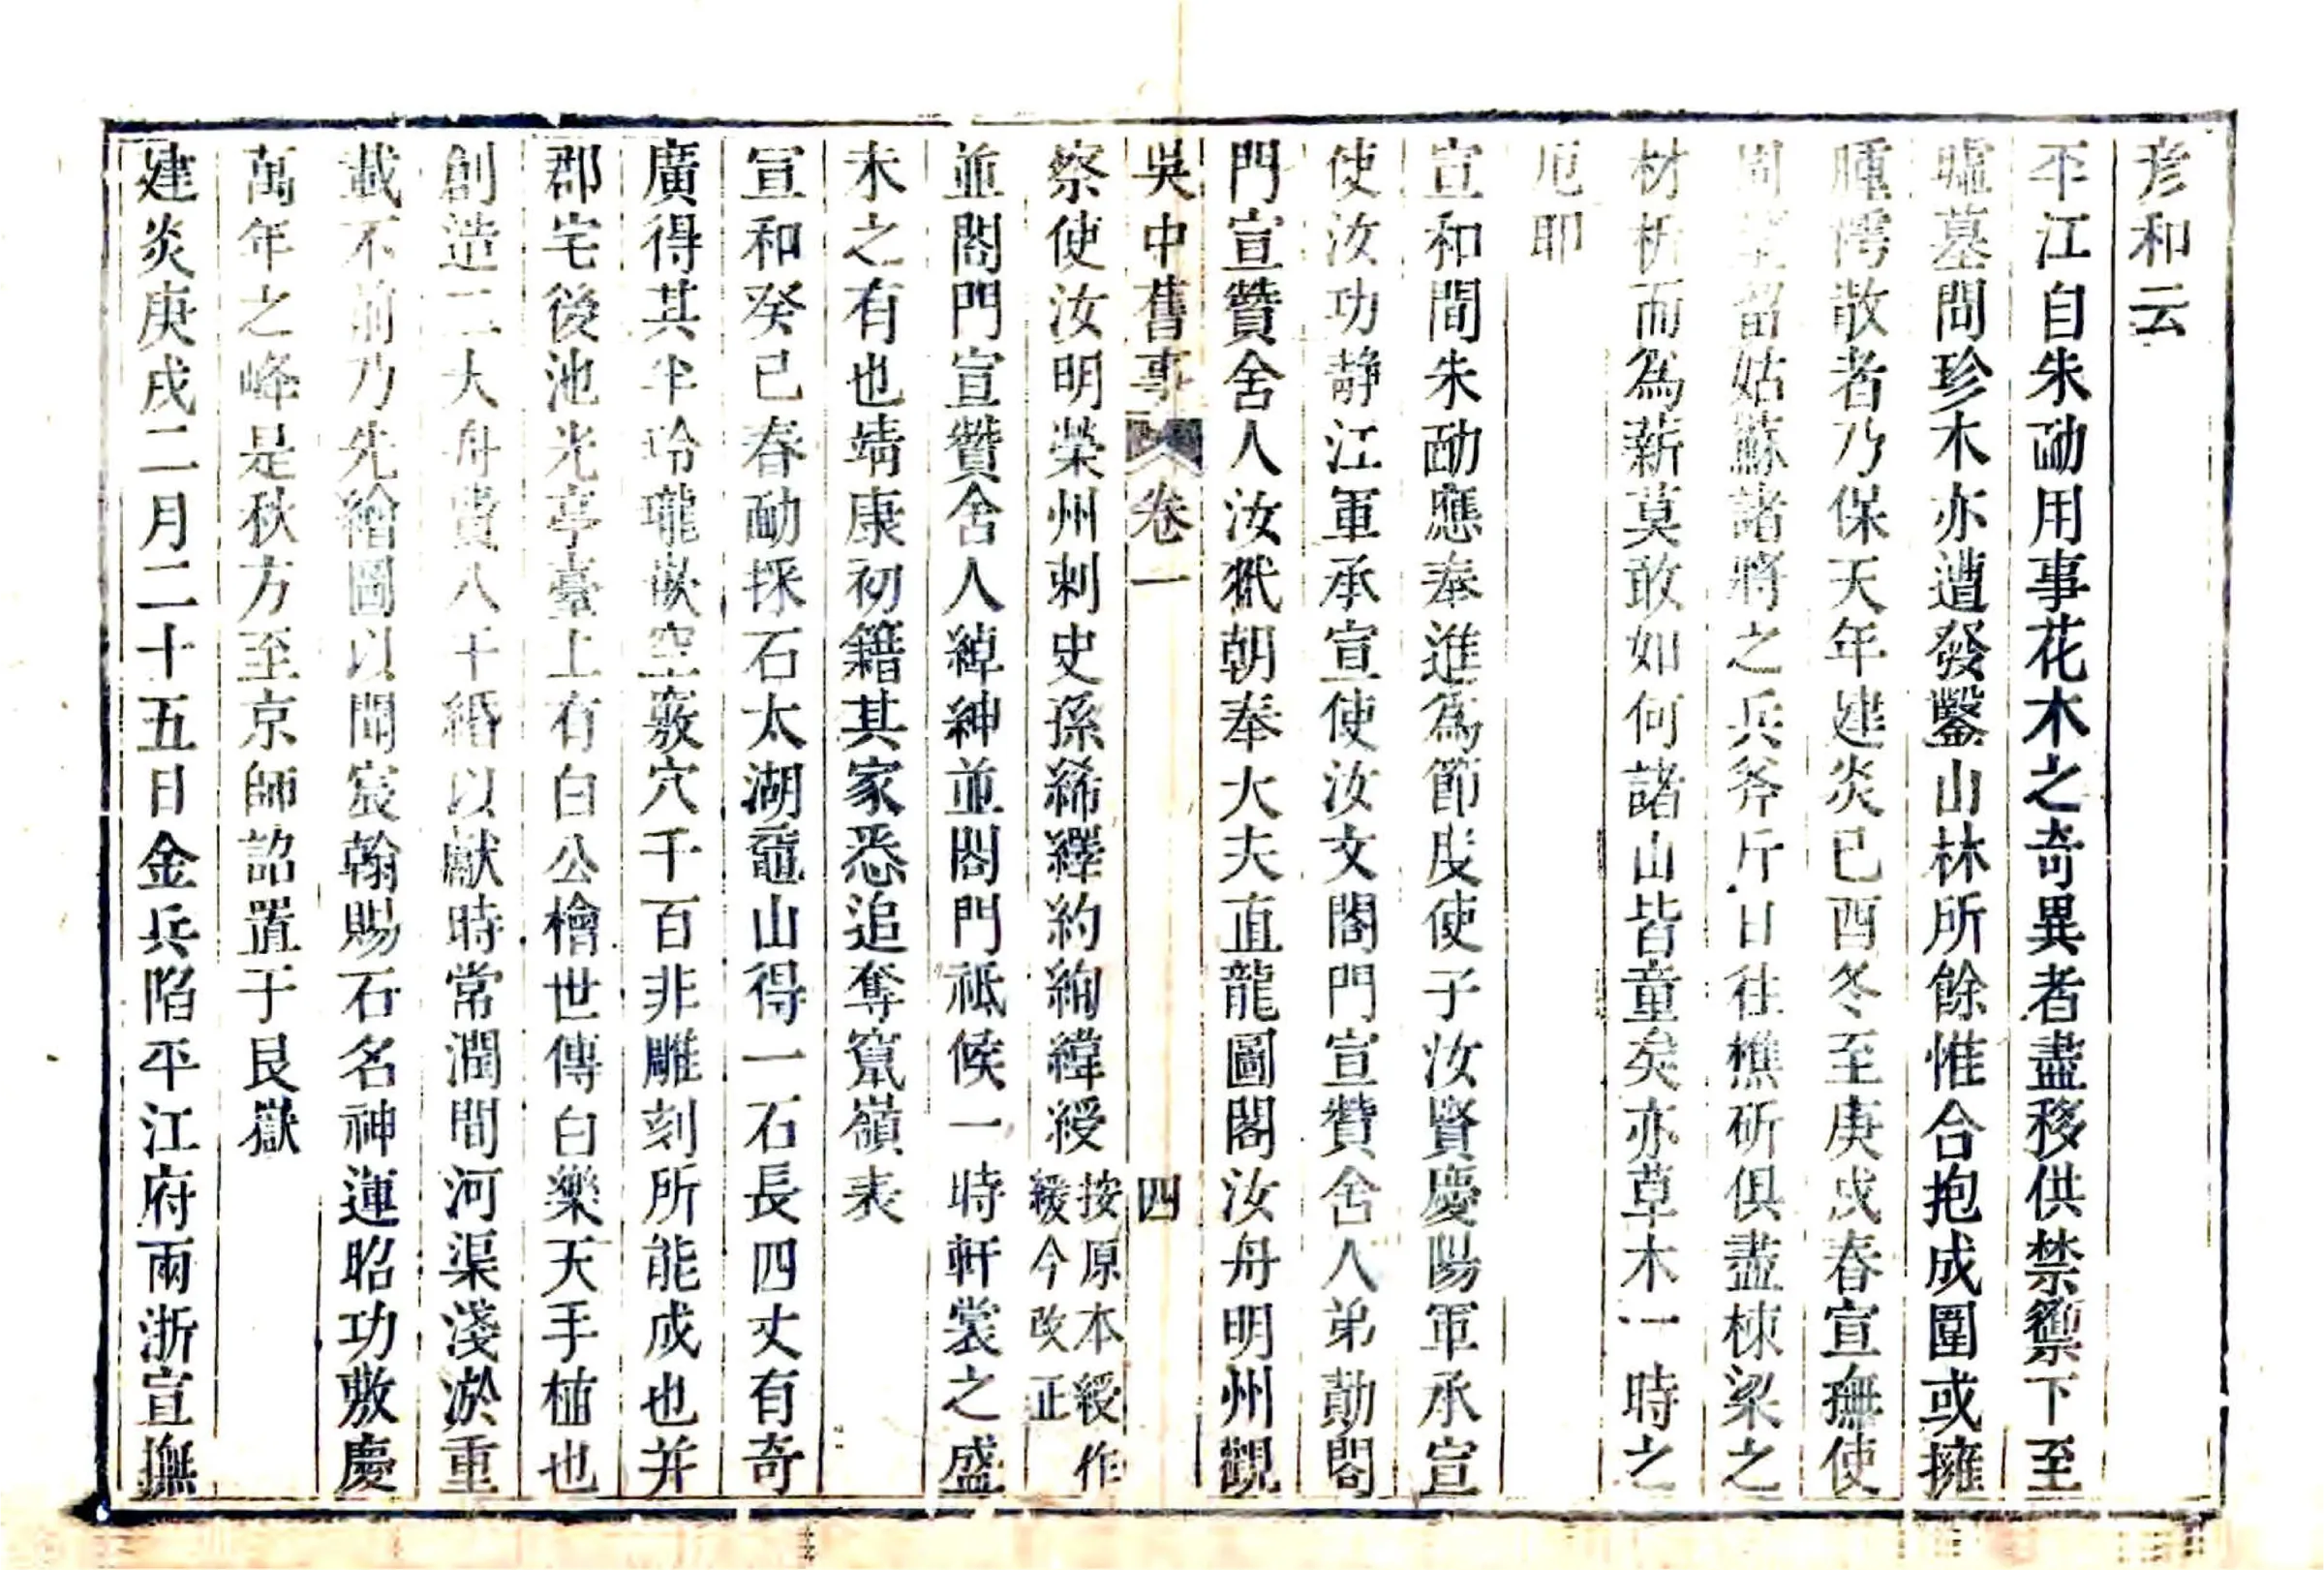 彥和云
平江自朱勔用事花木之奇異者盡移供禁籞下至
墟墓間珍木亦遭發鑿山林所餘惟合抱成圍或擁
腫薄散者乃保天年建炎己酉冬至庚戌春宣撫使
周望留姑蘇諸將之兵斧斤日往樵斫俱盡棟梁之
材析而爲薪莫敢如何諸山皆童矣亦草木一時之
厄耶
宣和間朱勔應奉進爲節度使子汝賢慶陽軍承宣
使汝功靜江軍承宣使汝文閤門宣贊舍人弟勣閤
門宣贊舍人汝楫朝奉大夫直龍圖閣汝舟明州觀
吳中舊事 卷一 四
察使汝明榮州刺史孫絺繹約絢緯綬按原本綬作緩今改正
並閤門宣贊舍人綽紳並閤門祗候一時軒裳之盛
未之有也靖康初籍其家悉追奪竄嶺表
宣和癸巳春勔採石太湖黿山得一石長四丈有奇
廣得其半玲瓏嵌空竅穴千百非雕刻所能成也并
郡宅後池光亭臺上有白公檜世傳白樂天手植也
創造二大舟費八千緡以獻時常潤間河渠淺淤重
載不前乃先繪圖以聞宸翰賜石名神運昭功敷慶
萬年之峰是秋方至京師詔置于艮嶽
建炎庚戌二月二十五日金兵陷平江府兩浙宣撫